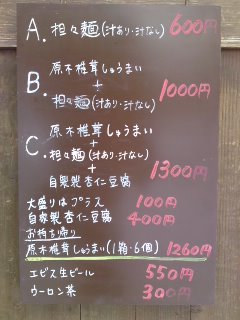 A. 担々麺(汁あり・汁なし) 600円
B. 原木椎茸しゅうまい
+
担々麺(汁あり・汁なし) 1000円
C. 原木椎茸しゅうまい
+
担々麺(汁あり・汁なし)
+
自家製杏仁豆腐 1300円
大盛りはプラス 100円
自家製杏仁豆腐 400円
お持ち帰り
原木椎茸しゅうまい(1箱・6個) 1260円
エビス生ビール 550円
ウーロン茶 300円